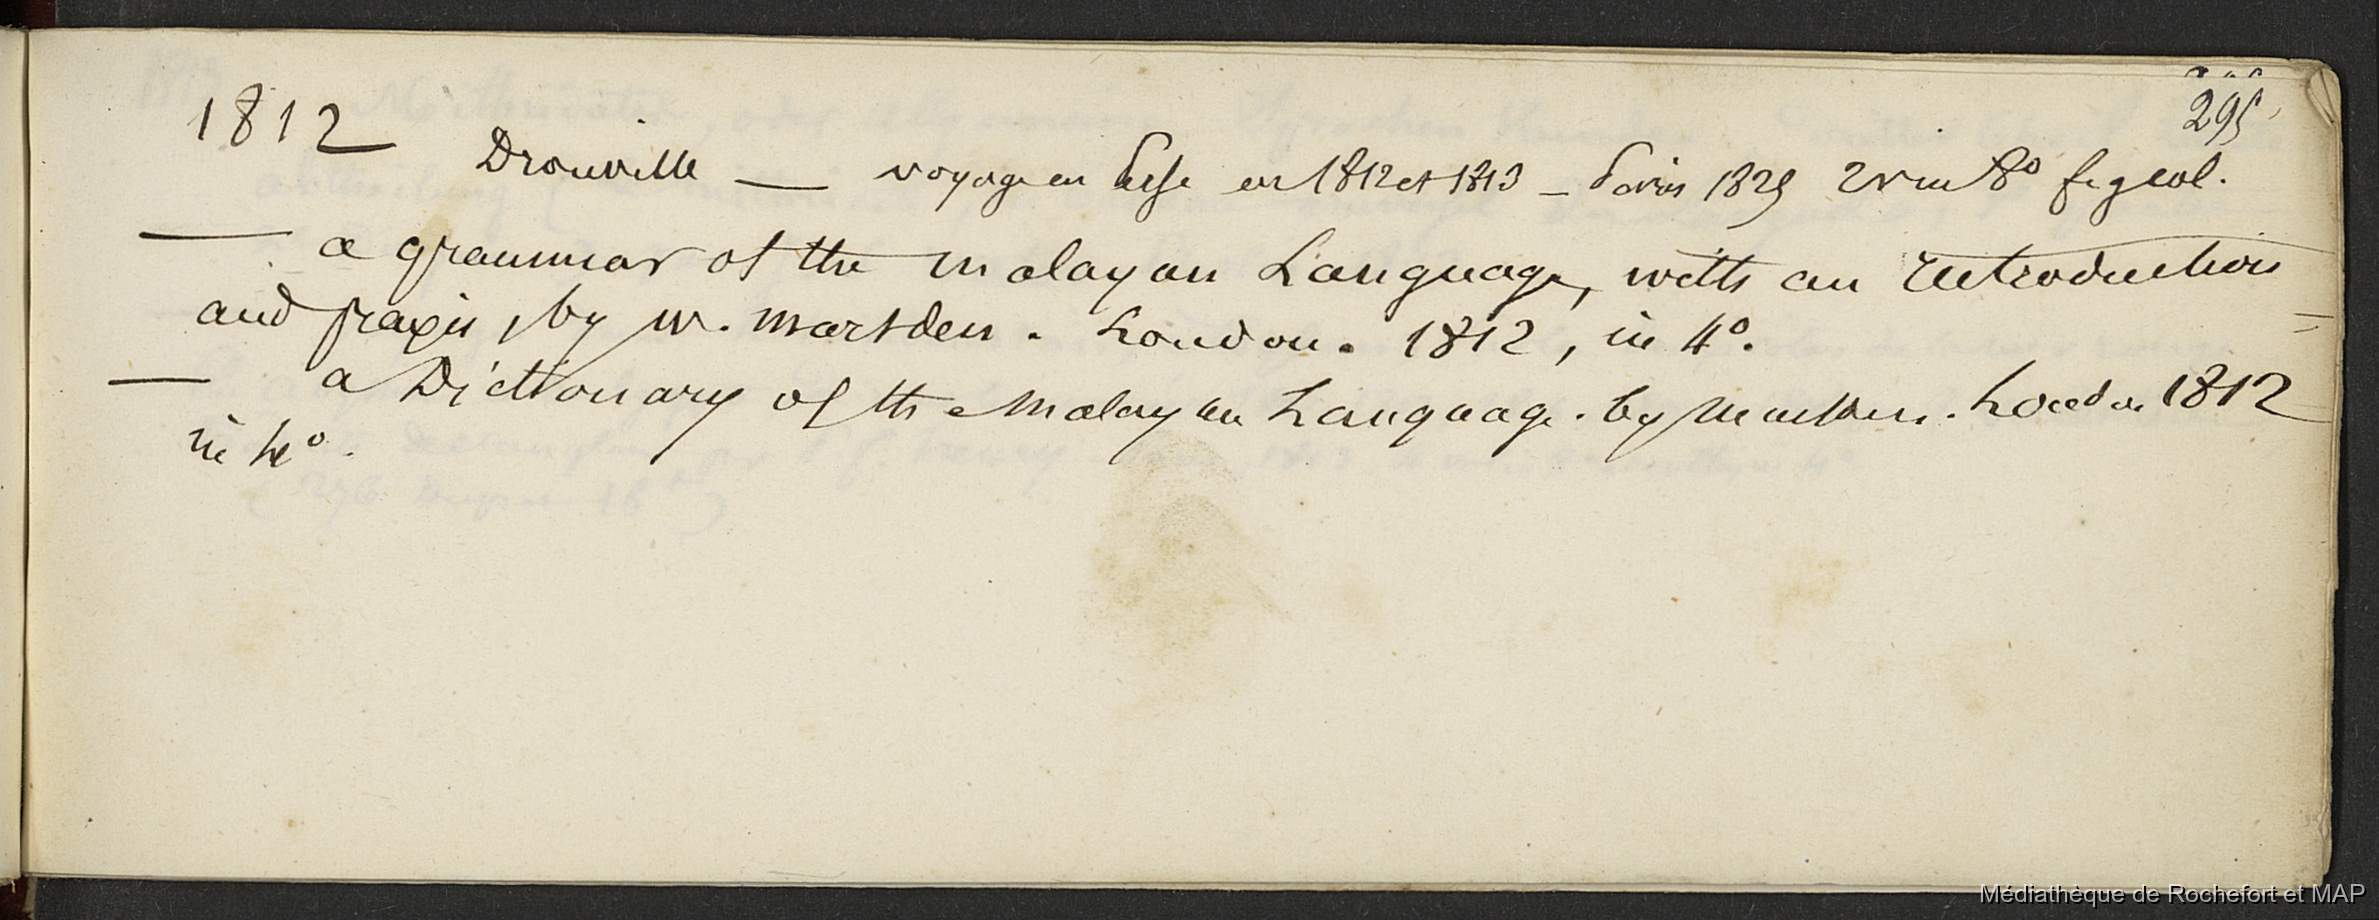 295
1812
Drouville — voyage en Perse en 1812 et 1813 — Paris 1825 2 v in 8° fig col.
— a grammar of the malayan Language, with an introduction
and praxis, by W. Marsden. London. 1812, in 4°.
— a Dictionary of the Malayan Language. by Marsden. London 1812
in 4°.
Médiathèque de Rochefort et MAP